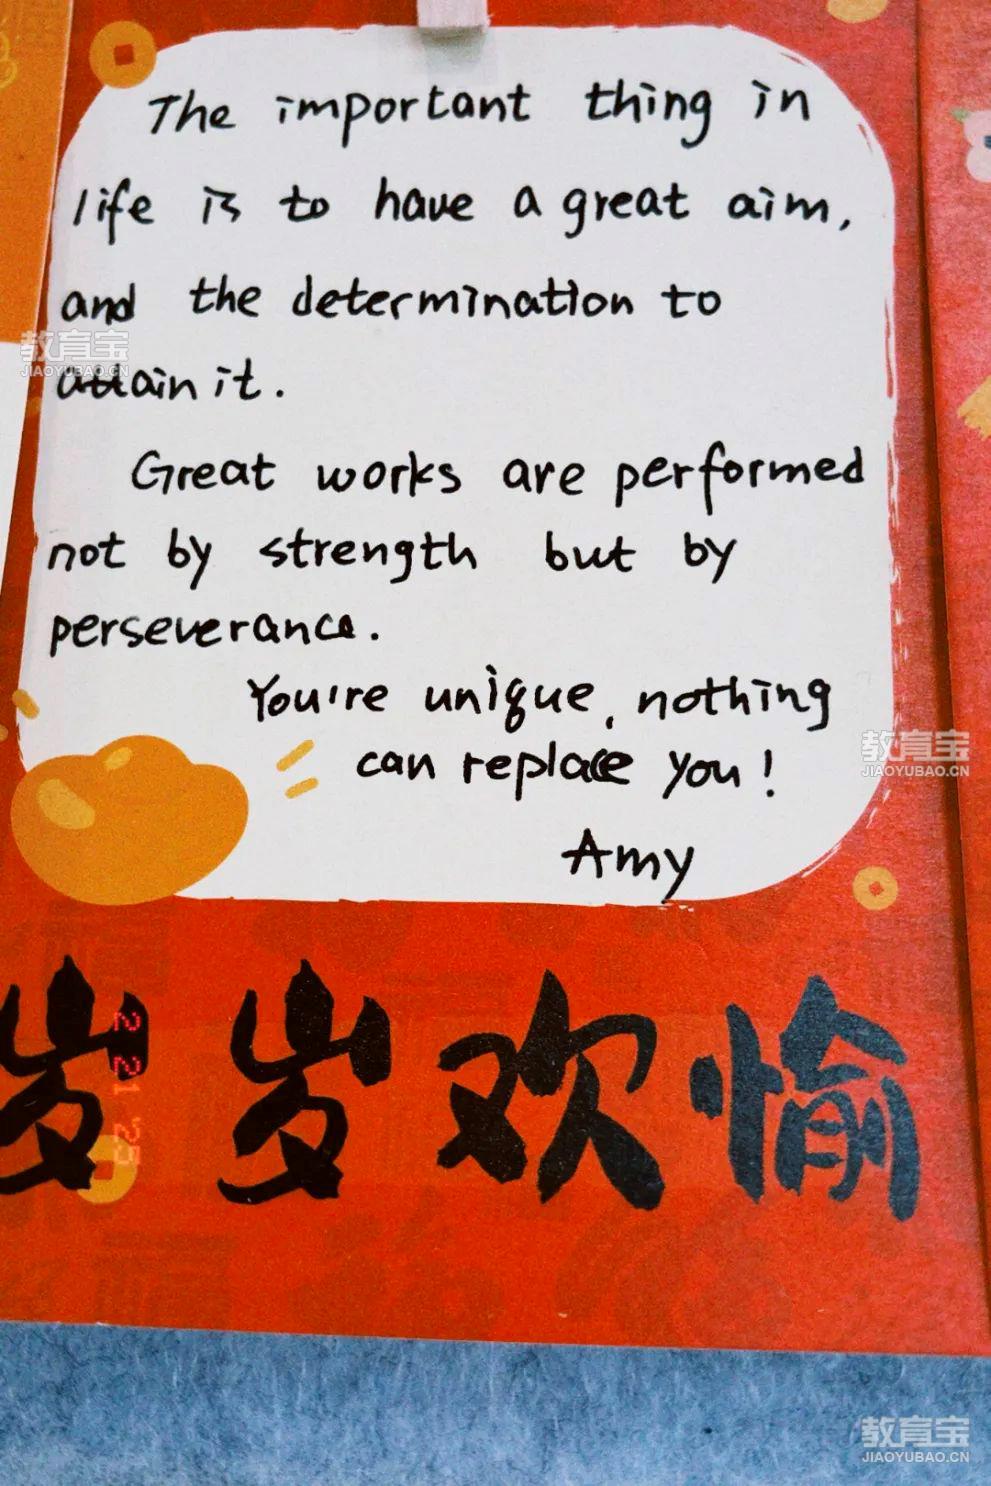 The important thing in
life is to have a great aim,
and the determination to
attain it.
Great works are performed
not by strength but by
perseverance.
You're unique, nothing
can replace you!
Amy
岁岁欢愉
2 21 25
教育宝
JIAOYUBAO.CN
教育宝
JIAOYUBAO.CN
教育宝
JIAOYUBAO.CN